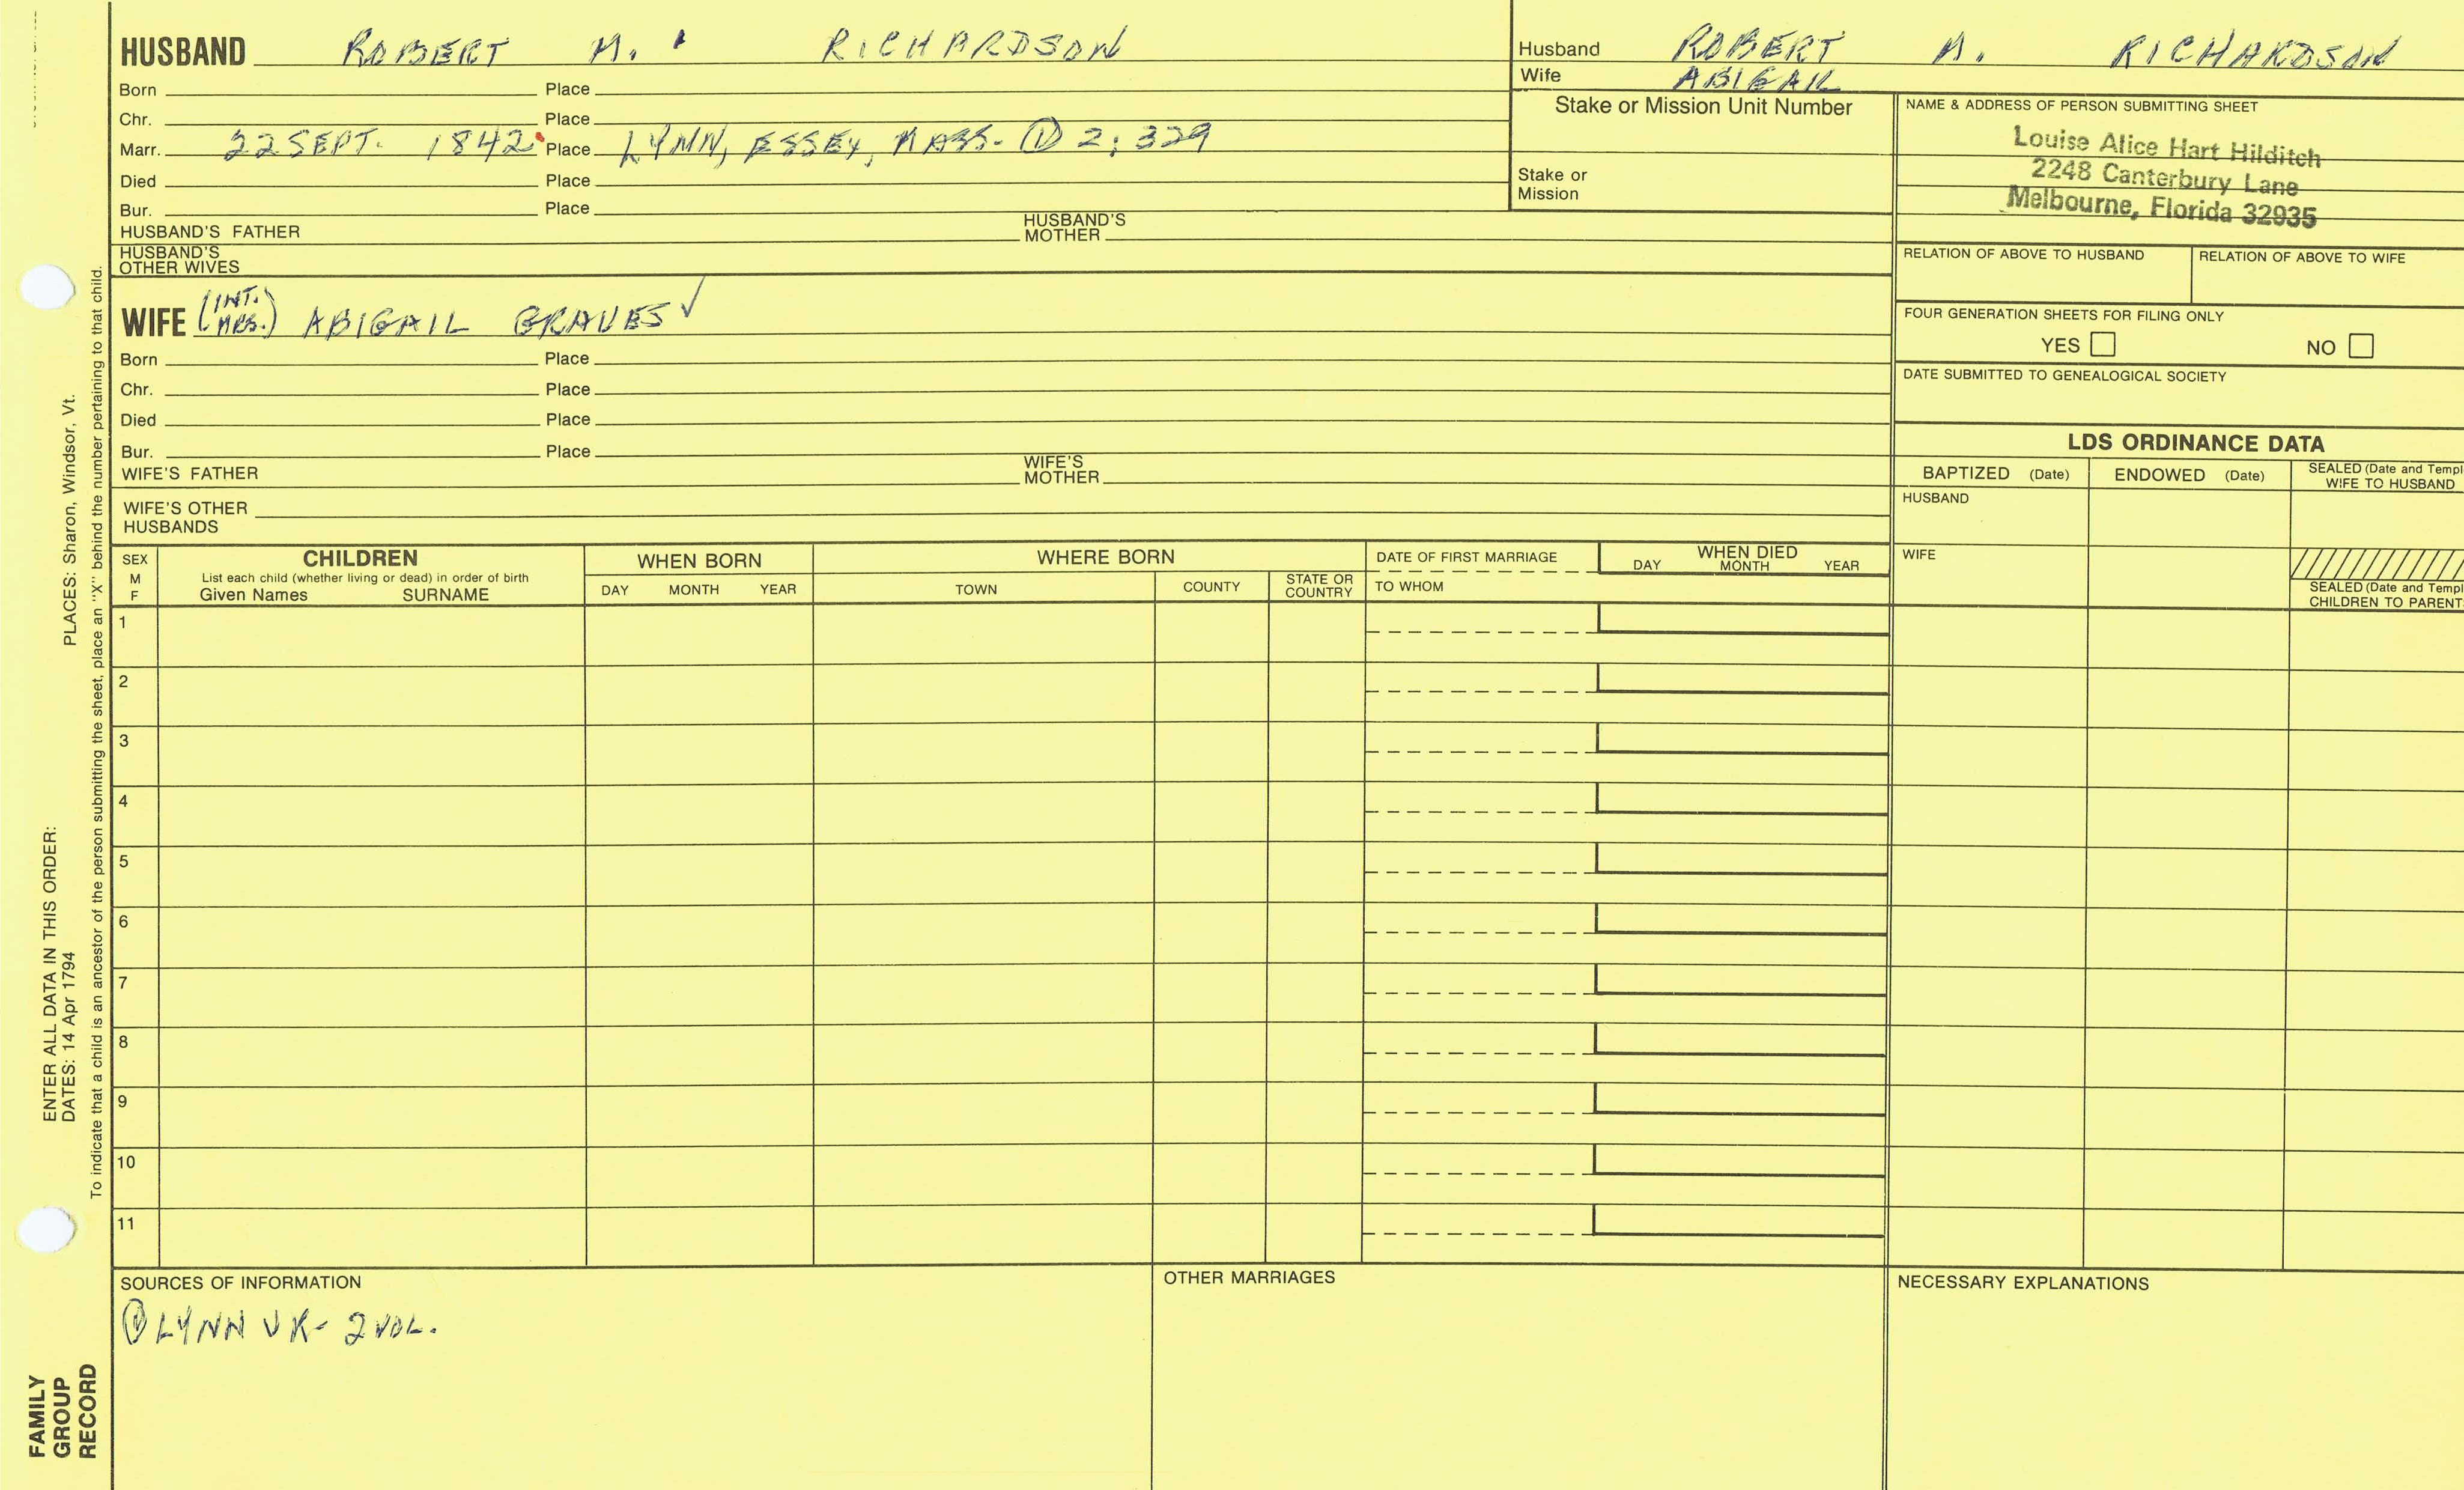 HUSBAND ROBERT M. RICHARDSON
Born Place
Chr. Place
Marr. 22 SEPT. 1842 Place LYNN, ESSEX, MASS. ① 2:329
Died Place
Bur. Place
HUSBAND'S FATHER HUSBAND'S MOTHER
HUSBAND'S OTHER WIVES
WIFE (INT. MRS.) ABIGAIL GRAVES ✓
Born Place
Chr. Place
Died Place
Bur. Place
WIFE'S FATHER WIFE'S MOTHER
WIFE'S OTHER HUSBANDS
Husband ROBERT M. RICHARDSON
Wife ABIGAIL
Stake or Mission Unit Number
Stake or Mission
NAME & ADDRESS OF PERSON SUBMITTING SHEET
Louise Alice Hart Hilditch
2248 Canterbury Lane
Melbourne, Florida 32935
RELATION OF ABOVE TO HUSBAND RELATION OF ABOVE TO WIFE
FOUR GENERATION SHEETS FOR FILING ONLY
YES NO
DATE SUBMITTED TO GENEALOGICAL SOCIETY
LDS ORDINANCE DATA
BAPTIZED (Date) ENDOWED (Date) SEALED (Date and Templ
WIFE TO HUSBAND
HUSBAND
WIFE
SEALED (Date and Templ
CHILDREN TO PARENT
SEX M F
CHILDREN
List each child (whether living or dead) in order of birth
Given Names SURNAME
WHEN BORN
DAY MONTH YEAR
WHERE BORN
TOWN COUNTY STATE OR COUNTRY
DATE OF FIRST MARRIAGE
TO WHOM
WHEN DIED
DAY MONTH YEAR
1
2
3
4
5
6
7
8
9
10
11
SOURCES OF INFORMATION
① LYNN VR - 2 VOL.
OTHER MARRIAGES
NECESSARY EXPLANATIONS
ENTER ALL DATA IN THIS ORDER:
DATES: 14 Apr 1794 PLACES: Sharon, Windsor, Vt.
To indicate that a child is an ancestor of the person submitting the sheet, place an "X" behind the number pertaining to that child.
FAMILY
GROUP
RECORD